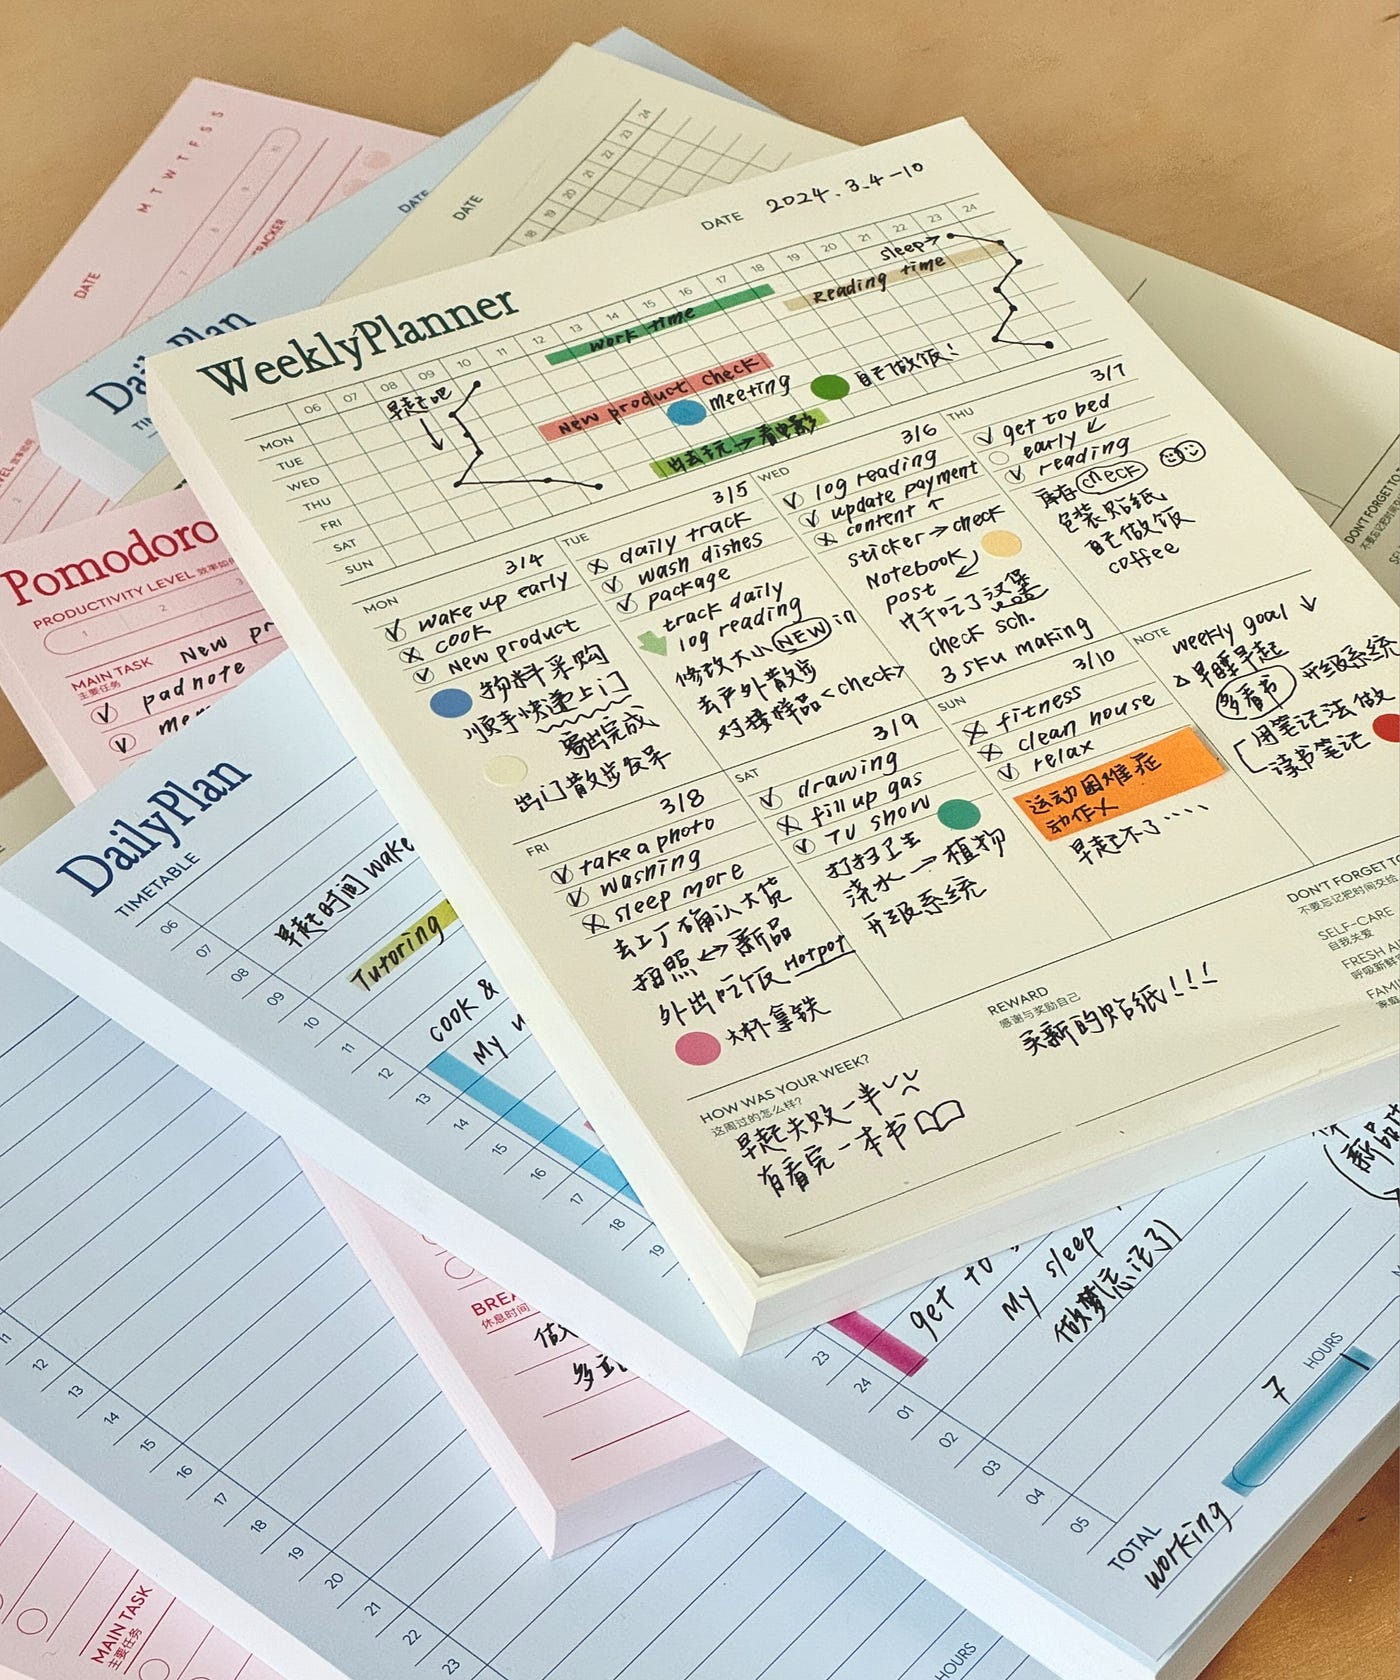 M T W T F S S
DATE
TRACKER
DATE
DATE
18 19 20 21 22 23 24
WeeklyPlanner
DATE 2024.3.4-10
06 07 08 09 10 11 12 13 14 15 16 17 18 19 20 21 22 23 24
MON
TUE
WED
THU
FRI
SAT
SUN
早起吧
work time
Reading time
sleep→
New product check
meeting
自己做饭!
出去玩→看电影
MON 3/4
wake up early
cook
new product
物料采购
顺手快递上门
寄出完成
出门散步发呆
TUE 3/5
daily track
wash dishes
package
track daily
log reading
修改大小 NEW in
去户外散步
对接样品<check>
WED 3/6
log reading
update payment
content ↑
sticker→check
Notebook
post
中午吃了汉堡
check sch.
3 sku making
THU 3/7
get to bed
early ↙
reading
库存check
包装贴纸
自己做饭
coffee
FRI 3/8
take a photo
washing
sleep more
去工厂确认大货
拍照↔新品
外出吃饭 Hotpot
大杯拿铁
SAT 3/9
drawing
fill up gas
TV show
打扫卫生
浇水→植物
升级系统
SUN 3/10
fitness
clean house
relax
运动困难症
动作慢
早起不了....
NOTE
weekly goal ↓
早睡早起
多看书 升级系统
用笔记法做
读书笔记
HOW WAS YOUR WEEK?
这周过的怎么样?
早起失败一半
有看完一本书
REWARD
感谢与奖励自己
买新的贴纸!!!
DON'T FORGET TO
不要忘记把时间交给
SELF-CARE
自我关爱
FRESH AI
呼吸新鲜
FAMI
家庭
DON'T FORGET TO
不要忘记把时间交给
DailyPlan
Pomodoro
PRODUCTIVITY LEVEL
1 2 3
MAIN TASK New pr
主要任务
padnote
DailyPlan
TIMETABLE
06
07
08
09
10
11
12
13
14
15
16
17
18
19
早起时间 wake
Tutoring
cook &
My
23
24
01
02
03
04
05
get to
My sleep
做梦(忘记了)
新品
7 HOURS
TOTAL
working
BREA
休息时间
11
12
13
14
15
16
17
18
19
20
21
22
23
HOURS
MAIN TASK
主要任务